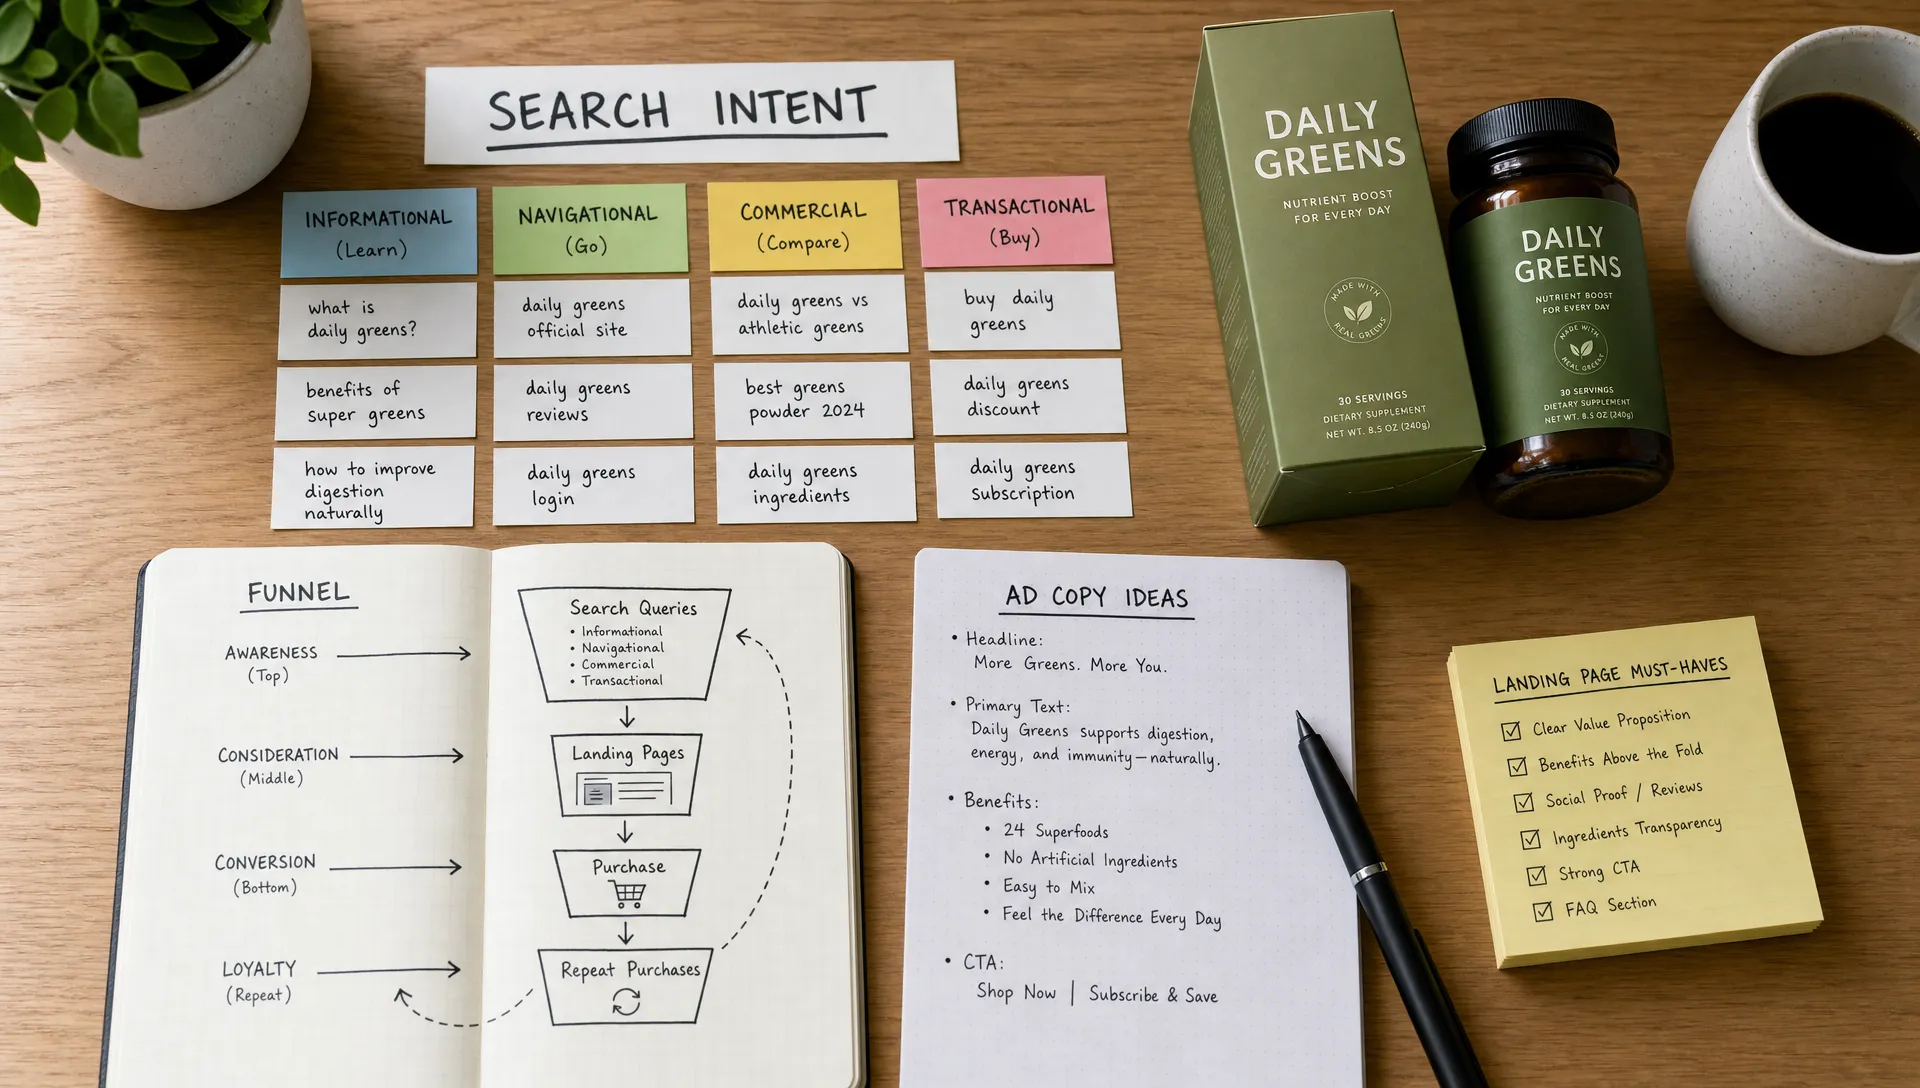 SEARCH INTENT
INFORMATIONAL
(Learn)
what is
daily greens?
benefits of
super greens
how to improve
digestion
naturally
NAVIGATIONAL
(Go)
daily greens
official site
daily greens
reviews
daily greens
login
COMMERCIAL
(Compare)
daily greens vs
athletic greens
best greens
powder 2024
daily greens
ingredients
TRANSACTIONAL
(Buy)
buy daily
greens
daily greens
discount
daily greens
subscription
DAILY
GREENS
NUTRIENT BOOST
FOR EVERY DAY
MADE WITH
REAL GREENS
30 SERVINGS
DIETARY SUPPLEMENT
NET WT. 8.5 OZ (240g)
DAILY
GREENS
NUTRIENT BOOST
FOR EVERY DAY
MADE WITH
REAL GREENS
30 SERVINGS
DIETARY SUPPLEMENT
NET WT. 8.5 OZ (240g)
FUNNEL
AWARENESS
(Top)
CONSIDERATION
(Middle)
CONVERSION
(Bottom)
LOYALTY
(Repeat)
Search Queries
• Informational
• Navigational
• Commercial
• Transactional
Landing Pages
Purchase
Repeat Purchases
AD COPY IDEAS
• Headline:
More Greens. More You.
• Primary Text:
Daily Greens supports digestion,
energy, and immunity—naturally.
• Benefits:
• 24 Superfoods
• No Artificial Ingredients
• Easy to Mix
• Feel the Difference Every Day
• CTA:
Shop Now | Subscribe & Save
LANDING PAGE MUST-HAVES
☑ Clear Value Proposition
☑ Benefits Above the Fold
☑ Social Proof / Reviews
☑ Ingredients Transparency
☑ Strong CTA
☑ FAQ Section